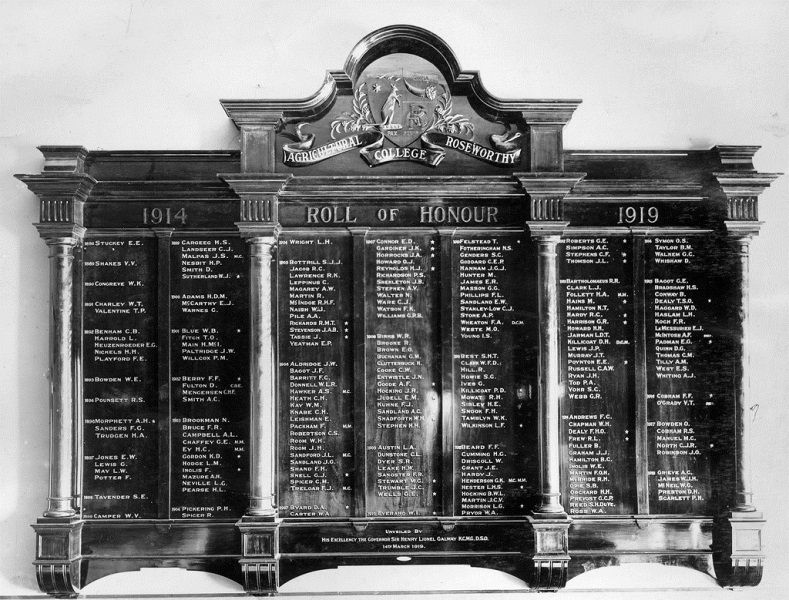 AGRICULTURAL COLLEGE ROSEWORTHY
1914
ROLL OF HONOUR
1919
STUCKEY E.E.
SHAKES V.V.
CONGREVE W.K.
CHARLEY W.T.
VALENTINE T.P.
BENHAM C.B.
HARROLD L.
HEUZENROEDER E.G.
NICKELS H.H.
PLAYFORD F.E.
BOWDEN W.E.
POUNSETT R.S.
MORPHETT A.H.
SANDERS F.C.
TRUDGEN H.A.
1907 JONES E.W.
LEWIS G.
MAY L.W.
POTTER F.
TAVENDER S.E.
CAMPER W.V.
CARGEEG H.S.
LANDSEER C.J.
MALPAS J.S. M.C.
NESBIT H.P.
SMITH D.
SUTHERLAND W.J.
ADAMS H.D.M.
MCCARTHY E.J.
WARNES G.
BLUE W.B.
FITCH T.O.
MAIN H.M.I.
PALTRIDGE J.W.
WILLCOX P.M.
BERRY F.F.
FULTON D. C.B.E.
MENGERSEN C.H.F.
SMITH A.C.
BROOKMAN N.
BRUCE F.R.
CAMPBELL A.L.
CHAFFEY G.E. M.M.
EY H.C. M.M.
GORDON K.D.
HODGE L.M.
INGLIS F.
MAZURE A.H.
NEVILLE L.G.
PEARSE H.L.
1904 PICKERING P.H.
SPICER R.
WRIGHT L.H.
BOTTRILL S.J.J.
JACOB R.C.
LAWRENCE R.K.
LEPPINUS C.
MAGAREY A.W.
MARTIN R.
NAISH W.J.
PILE A.A.
RICHARDS R.M.T.
STEVENSON J.A.B.
TASSIE J.
YEATMAN E.P.
ALDRIDGE J.W.
BAGOT J.F.
BARRITT F.C.
DONNELL W.L.R.
HAWKER A.S. M.C.
HEATH C.H.
KAY W.M.
KNABE C.H.
LEISHMAN E.
PACKHAM F. M.M.
ROBERTSON C.S.
ROOM W.H.
ROOM J.H.
SANDFORD J.L. M.C.
SANDLAND J.G.
SHAND F.H.
SNELL G.J.
SPICER C.M.
TRELOAR F.J. M.C.
1907 BYARD D.A.
CARTER W.A.
1907 CONNOR E.D.
GARDINER J.K.
HORROCKS J.A.
HOWARD O.J.
REYNOLDS H.J.
RICHARDSON P.S.
SHEKLETON J.B.
STEPHEN A.V.
WALTER N.
WARE C.J.
WATSON F.K.
WILLIAMS G.R.B.
BIRKS W.R.
BROUNE R.
BROWN E.G.
BUCHANAN G.M.
CLUTTERBUCK H.
COOKE C.W.
ENTWISTLE J.N.
GOODE A.F.
HOCKING J.R.
JUDELL E.M.
KUHNE F.J.
SANDLAND A.C.
SHADFORTH W.H.
STEPHEN K.H.
1909 AUSTIN L.A.
DUNSTONE C.L.
DYER S.R.
LEAKE H.W.
SANGSTER F.R.
STEWART M.G.
TRUMBLE J.C.
WELLS G.E.
EVERARD W.I.
FELSTEAD T.
FOTHERINGHAM N.S.
GENDERS S.C.
GODDARD C.E.P.
HANNAM J.G.J.
HUNTER M.
JAMES E.R.
MASSON G.G.
PHILLIPS F.L.
SANDLAND E.W.
STANLEY-LOW C.J.
STONE A.P.
WHEATON F.A. D.C.M.
WESTE M.O.
YOUNG I.S.
BEST S.H.T.
CLARK W.F.D.
HILL R.
HOWIE S.G.
IVES G.
KILLICOAT P.D.
MOWAT R.H.
SIBLEY H.E.
SNOOK F.H.
TAMBLYN W.K.
WILKINSON L.F.
BEARD F.F.
CUMMING H.G.
DRISCOLL W.
GRANT J.E.
HARDY J.
HENDERSON G.K. M.C. M.M.
HESTER L.H.S.
HOCKING B.W.L.
MARTIN J.C.V.
MORRISON L.G.
PRYOR W.A.
ROBERTS G.E.
SIMPSON A.C.
STEPHENS C.F.
THOMSON J.L.
BARTHOLOMAEUS R.R.
CLARK L.J.
FOLLETT H.A. M.M.
HAINS M.
HAMILTON N.T.
HARDY R.C.
HARRISON G.R.
HOWARD R.H.
JARMAN L.D.T.
KILLICOAT D.H. D.C.M.
LEWIS J.P.
MURRAY J.T.
POYNTER E.E.
RUSSELL C.A.W.
RYAN J.H.
TOD P.A.
VOHR S.C.
WEBB G.R.
ANDREWS F.C.
CHAPMAN W.H.
DEALY F.H.O.
FREW R.L.
FULLER B.
GRAHAM J.J.
HAMILTON B.C.
INGLIS W.E.
MARTIN F.G.H.
MCBRIDE R.H.
OHE S.B.
ORCHARD H.H.
PREVOST G.C.P.
ROSS W.A.
SYMON O.S.
TAYLOR B.M.
WALKEM G.C.
WHISHAW D.
BAGOT G.E.
BRADSHAW H.S.
CONWAY B.
DEALY T.S.O.
HAGGARD W.D.
HASLAM L.H.
KOCH F.R.
LA MESSURIER E.J.
MCINTOSH A.F.
PADMAN E.G.
QUINN D.G.
THOMAS C.M.
TILLY A.M.
WEST E.S.
WHITING A.J.
COBHAM F.F.
O'GRADY V.T.
BOWDEN O.
COBHAM R.S.
MANUEL M.C.
NORTH C.J.R.
ROBINSON J.G.
GRIEVE A.C.
JAMES W.J.H.
MCNEIL W.G.
PRESTON D.H.
SCARLETT P.H.
UNVEILED BY
HIS EXCELLENCY THE GOVERNOR SIR HENRY LIONEL GALWAY K.C.M.G. D.S.O.
14TH MARCH 1919.